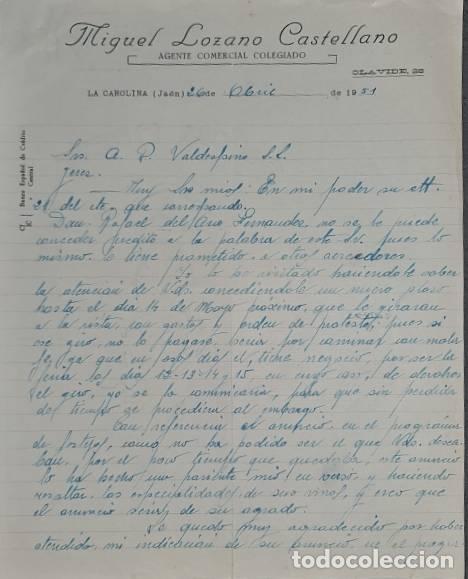 Miguel Lozano Castellano
AGENTE COMERCIAL COLEGIADO
OLAVIDE, 28
LA CAROLINA (Jaén) 26 de Abril de 1951
C/c Banco Español de Crédito
Central
Srs. A. R. Valdespino S.L.
Jerez
Muy Sres mios: En mi poder su att.
24 del cte. que correspondo.
Don Rafael del Amo Fernandez no se le puede
conceder credito a la palabra de este Sr. pues lo
mismo le tiene prometido a otros acreedores.
Ya lo he visitado haciendole saber
la atencion de Vds. concediendole un nuevo plazo
hasta el dia 14 de Mayo próximo, que le giraran
a la vista, con gastos y orden de protesto, pues si
ese giro, no lo pagase, seria por caminar con mala
fe ya que en esos dias el, tiene negocio, por ser la
feria los dias 12-13-14 y 15, en cuyo caso, de devolver
el giro, yo se lo comunicaria, para que sin perdida
de tiempo se procediera al embargo.
Con referencia al anuncio, en el programa
de festejos, como no ha podido ser el que Vds. desea-
ban, por el poco tiempo que quedaba, este anuncio
lo ha hecho un pariente mio, en verso y haciendo
resaltar las especialidades de sus vinos, y creo que
el anuncio será de su agrado.
Le quedo muy agradecido por haber
atendido, mi indicacion de su anuncio, en el progra-
todocoleccion